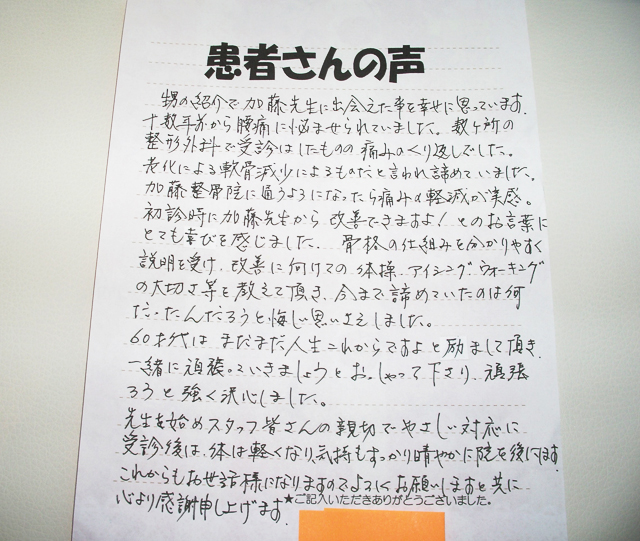 患者さんの声
甥の紹介で加藤先生に出会えた事を幸せに思っています。
十数年前から腰痛に悩ませられていました。数ヶ所の
整形外科で受診はしたものの痛みのくり返しでした。
老化による軟骨減少によるものだと言われ諦めていました。
加藤整骨院に通うようになったら痛みの軽減が実感。
初診時に加藤先生から改善できますよ!とのお言葉に
とても喜びを感じました。骨格の仕組みを分かりやすく
説明を受け、改善に向けての体操、アイシング、ウォーキング
の大切さ等を教えて頂き、今まで諦めていたのは何
だったんだろうと悔しい思いさえしました。
60才代はまだまだ人生これからですよと励まして頂き、
一緒に頑張っていきましょうとおっしゃって下さり、頑張
ろうと強く決心しました。
先生を始めスタッフ皆さんの親切でやさしい対応に
受診後は、体は軽くなり、気持もすっかり晴やかに院を後にします。
これからもお世話様になりますのでよろしくお願いしますと共に
心より感謝申し上げます。
★ご記入いただきありがとうございました。